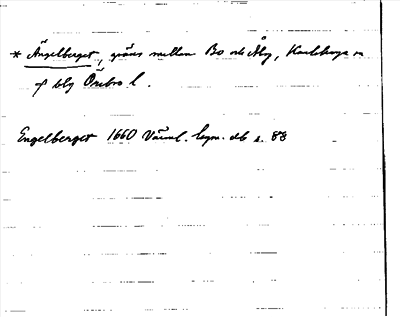 * Ängelberget, gräns mellan Bo och Åby, Karlskoga sn
o. hg Örebro l.
Engelberget 1660 Värml. lagm. db s. 88